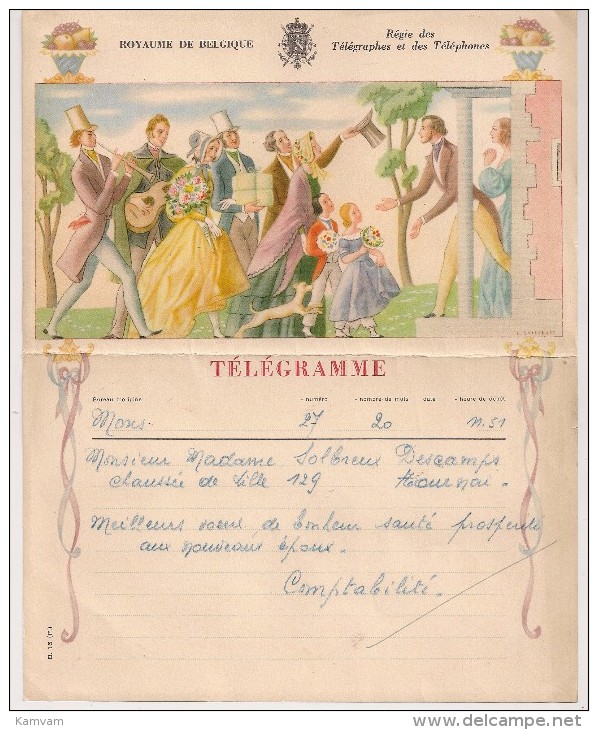 ROYAUME DE BELGIQUE
Régie des
Télégraphes et des Téléphones
TÉLÉGRAMME
Bureau d'origine - numéro - nombre de mots - date - heure de dépôt
Mons. 27 20 11.51
Monsieur Madame Solbreux Descamps
chaussée de Lille 129 Tournai.
Meilleurs voeux de bonheur santé prospérité
aux nouveaux époux.
Comptabilité.
Kamvam www.delcampe.net